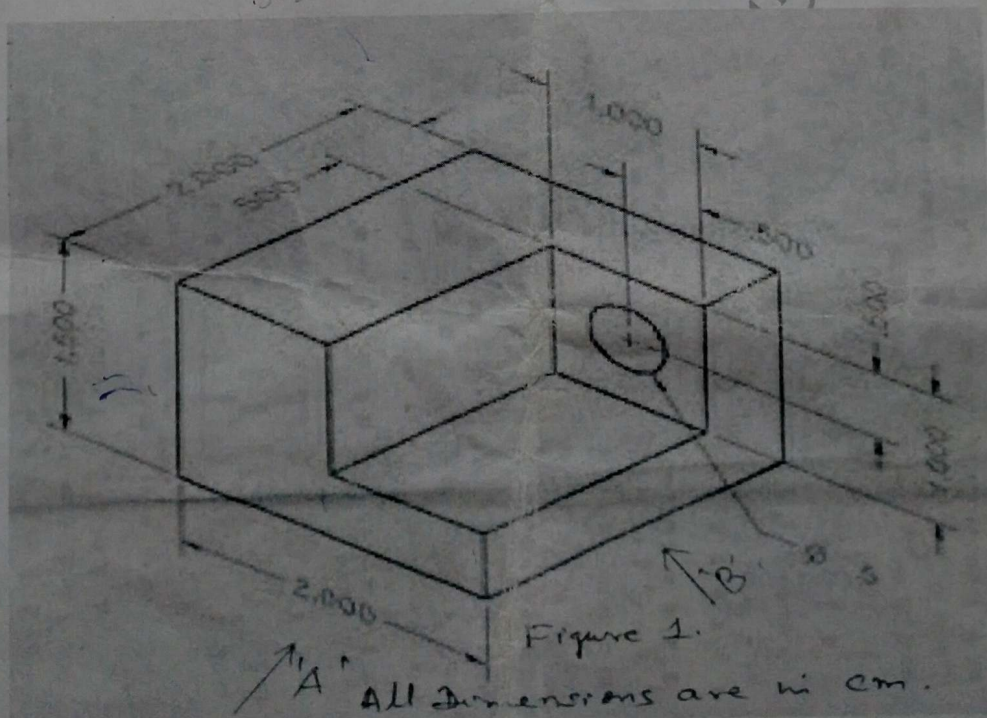 1.000
2.000
.500
.500
1.500
.500
1.000
Ø .5
"B"
2.000
Figure 1.
"A" All Dimensions are in cm.